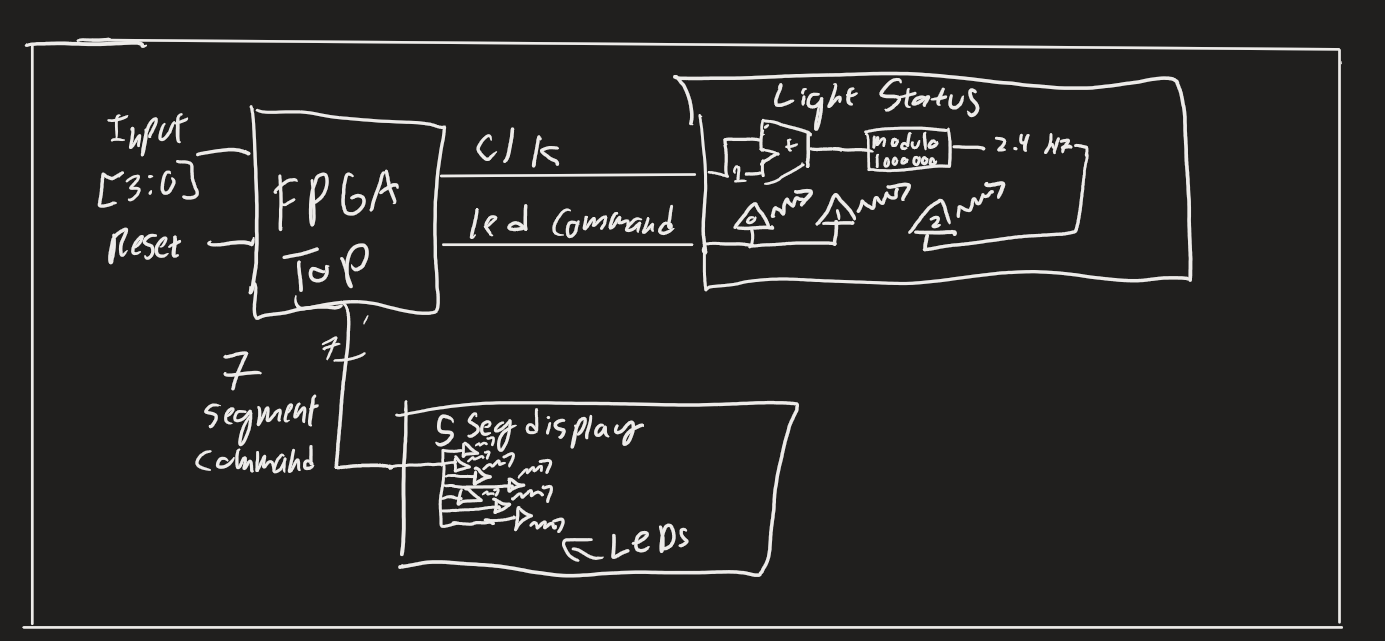 Input
[3:0]
Reset
FPGA
TOP
clk
led command
Light Status
+
1
modulo
1000000
2.4 Hz
0
1
2
7
7
segment
command
S Seg display
LEDs